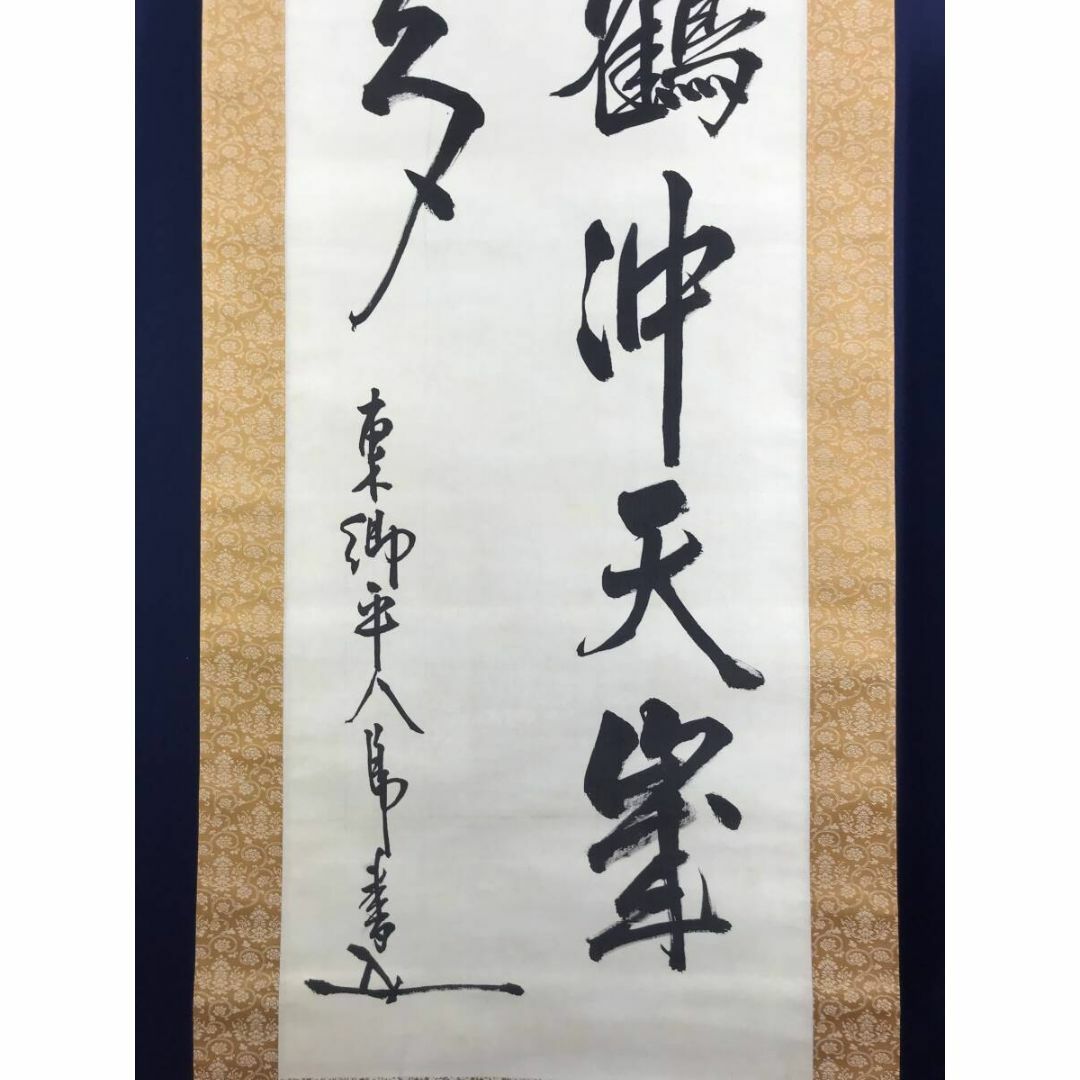 鶴沖天峯
多
東郷平八郎書